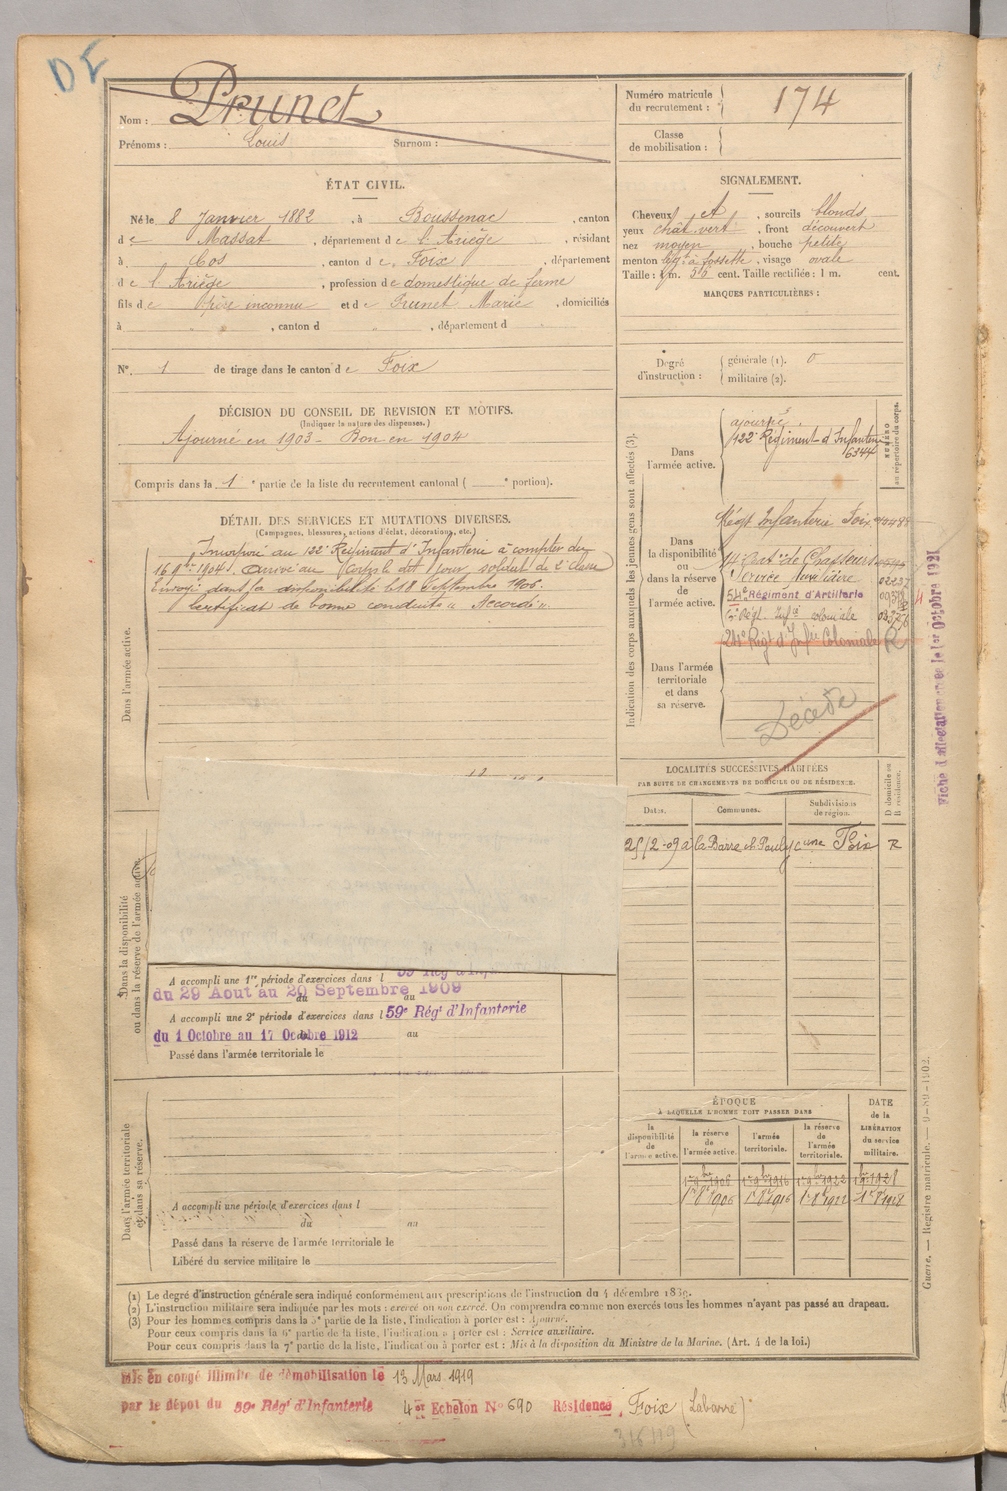 DE
Nom : Prunet
Prénoms : Louis Surnom :
Numéro matricule du recrutement : 174
Classe de mobilisation :
ÉTAT CIVIL.
Né le 8 Janvier 1882, à Boussenac, canton
de Massat, département de l'Ariège, résidant
à Cos, canton de Foix, département
de l'Ariège, profession de domestique de ferme
fils de père inconnu et de Prunet Marie, domiciliés
à , canton d , département d
N° 1 de tirage dans le canton de Foix
SIGNALEMENT.
Cheveux et, sourcils blonds
yeux chat. vert, front découvert
nez moyen, bouche petite
menton à fossette, visage ovale
Taille : 1 m. 55 cent. Taille rectifiée : 1 m. cent.
MARQUES PARTICULIÈRES :
Degré d'instruction : générale (1). 0
militaire (2).
DÉCISION DU CONSEIL DE REVISION ET MOTIFS.
(Indiquer la nature des dispenses.)
Ajourné en 1903 - Bon en 1904
Compris dans la 1e partie de la liste du recrutement cantonal ( e portion).
DÉTAIL DES SERVICES ET MUTATIONS DIVERSES.
(Campagnes, blessures, actions d'éclat, décorations, etc.)
Dans l'armée active.
Incorporé au 122e Régiment d'Infanterie à compter du
16 9bre 1904. Arrivé au Corps le dit jour, soldat de 2e classe
Envoyé dans la disponibilité le 18 Septembre 1906.
Certificat de bonne conduite "Accordé"
Dans la disponibilité ou dans la réserve de l'armée active.
A accompli une 1re période d'exercices dans l 59 Rég
du 29 Aout au 20 Septembre 1909
du au
A accompli une 2e période d'exercices dans l 59e Régt d'Infanterie
du 1 Octobre au 17 Octobre 1912
au
Passé dans l'armée territoriale le
Dans l'armée territoriale et dans sa réserve.
A accompli une période d'exercices dans l
du au
Passé dans la réserve de l'armée territoriale le
Libéré du service militaire le
Indication des corps auxquels les jeunes gens sont affectés (3).
NUMÉRO au répertoire du corps.
Dans l'armée active.
ajourné.
122e Régiment d'Infanterie
6344
Dans la disponibilité ou dans la réserve de l'armée active.
Régt Infanterie Foix
Service auxiliaire
54e Régiment d'Artillerie
Régt Infie coloniale
24e Régt d'Infie Coloniale
R
Dans l'armée territoriale et dans sa réserve.
Décédé
Fiche d'affectation créée le 1er Octobre 1921
LOCALITÉS SUCCESSIVES HABITÉES
PAR SUITE DE CHANGEMENTS DE DOMICILE OU DE RÉSIDENCE.
D domicile ou R résidence.
Dates. Communes. Subdivisions de région.
Foix R
ÉPOQUE
À LAQUELLE L'HOMME DOIT PASSER DANS
DATE de la LIBÉRATION du service militaire.
la disponibilité de l'armée active.
la réserve de l'armée active.
l'armée territoriale.
la réserve de l'armée territoriale.
1er 9bre 1906 1er 9bre 1916 1er 9bre 1922 1er 9bre 1928
Guerre. — Registre matricule. — 9-89-1902.
(1) Le degré d'instruction générale sera indiqué conformément aux prescriptions de l'instruction du 4 décembre 1889.
(2) L'instruction militaire sera indiquée par les mots : exercé ou non exercé. On comprendra comme non exercés tous les hommes n'ayant pas passé au drapeau.
(3) Pour les hommes compris dans la 5e partie de la liste, l'indication à porter est : Ajourné.
Pour ceux compris dans la 6e partie de la liste, l'indication à porter est : Service auxiliaire.
Pour ceux compris dans la 7e partie de la liste, l'indication à porter est : Mis à la disposition du Ministre de la Marine. (Art. 4 de la loi.)
Mis en congé illimité de démobilisation le 13 Mars 1919
par le dépôt du 59e Régt d'Infanterie 4e Echelon N° 690 Résidence Foix (Labarre)